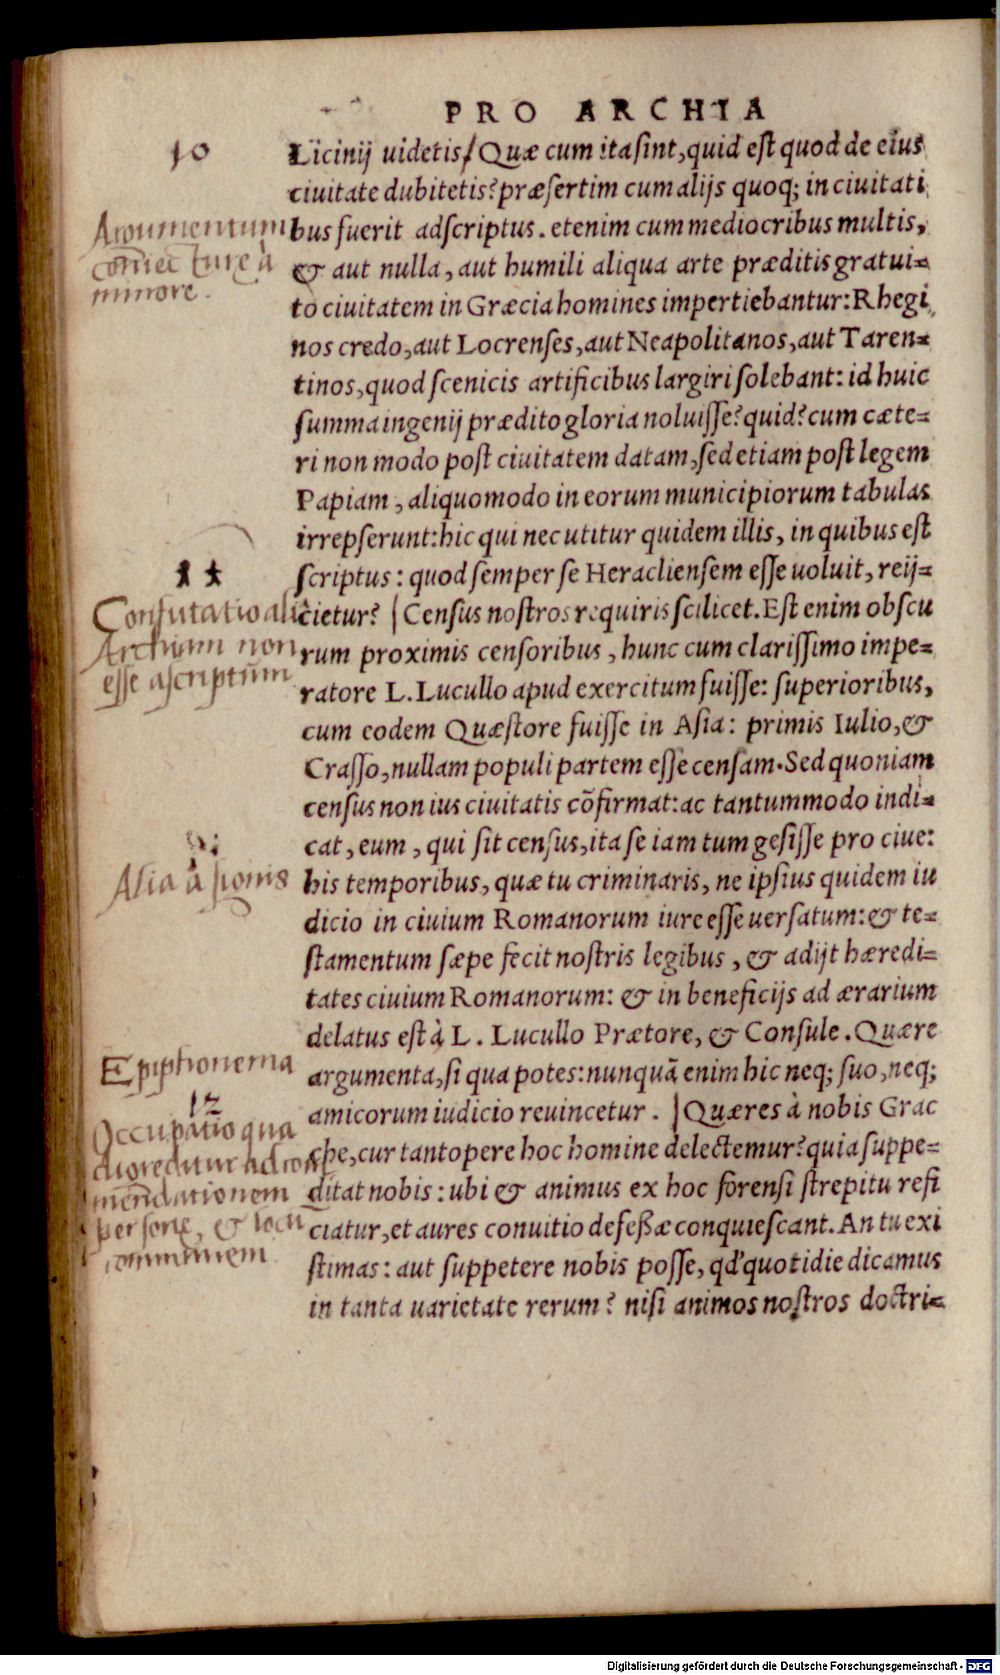 PRO ARCHIA
10
Licinij uidetis/ Quæ cum ita sint, quid est quod de eius
ciuitate dubitetis? præsertim cum alijs quoq; in ciuitati
Argumentum
bus fuerit adscriptus. etenim cum mediocribus multis,
coniecturę à
& aut nulla, aut humili aliqua arte præditis gratui=
minore.
to ciuitatem in Græcia homines impertiebantur: Rhegi
nos credo, aut Locrenses, aut Neapolitanos, aut Taren=
tinos, quod scenicis artificibus largiri solebant: id huic
summa ingenij prædito gloria noluisse? quid? cum cæte=
ri non modo post ciuitatem datam, sed etiam post legem
Papiam, aliquo modo in eorum municipiorum tabulas
irrepserunt: hic qui nec utitur quidem illis, in quibus est
11
scriptus: quod semper se Heracliensem esse uoluit, reij=
Confutatio
cietur? | Census nostros requiris scilicet. Est enim obscu
Archiam non
rum proximis censoribus, hunc cum clarissimo impe=
esse ascriptum
ratore L. Lucullo apud exercitum fuisse: superioribus,
cum eodem Quæstore fuisse in Asia: primis Iulio, &
Crasso, nullam populi partem esse censam. Sed quoniam
census non ius ciuitatis cōfirmat: ac tantummodo indi=
cat, eum, qui sit census, ita se iam tum gesisse pro ciue:
Alia à signis
his temporibus, quæ tu criminaris, ne ipsius quidem iu
dicio in ciuium Romanorum iure esse uersatum: & te=
stamentum sæpe fecit nostris legibus, & adijt hæredi=
tates ciuium Romanorum: & in beneficijs ad ærarium
delatus est à L. Lucullo Prætore, & Consule. Quære
Epiphonema
argumenta, si qua potes: nunquā enim hic neq; suo, neq;
12
amicorum iudicio reuincetur. | Quæres à nobis Grac
Occupatio qua
che, cur tantopere hoc homine delectemur? quia suppe=
digreditur ad com
mēdationem
ditat nobis: ubi & animus ex hoc forensi strepitu refi
personę, & locū
ciatur, et aures conuitio defeßæ conquiescant. An tu exi
communem
stimas: aut suppetere nobis posse, qđ quotidie dicamus
in tanta uarietate rerum? nisi animos nostros doctri=
Digitalisierung gefördert durch die Deutsche Forschungsgemeinschaft - DFG